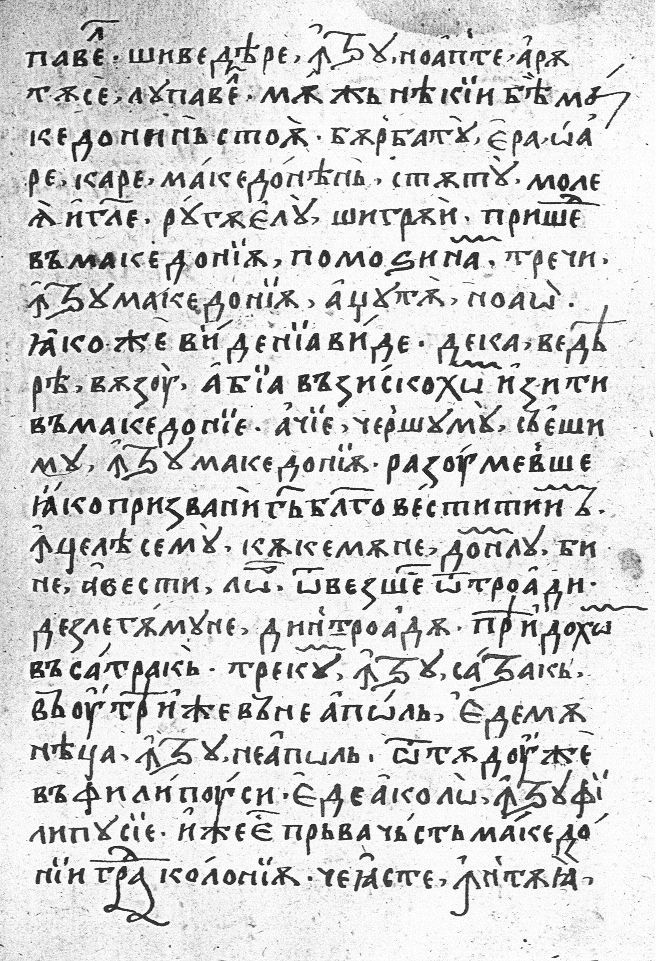 павеⷧ҇. шиведѣре, ꙟтру, ноапте, арѫ
тѫсе, лупавеⷧ҇. мѫжь нѣкїи бѣ ма
кедонинь стоѫ. бѫрбату, ера, ѡа
ре, каре, македонѣнь, стѫту. моле
ѫ и гл҃е. ругѫелу, шигрѫи. пришеⷣ
въмакедонїѫ, помоѕи на. тречи,
ꙟтру македонїѫ, ацутѫ, ноаѡ.
ꙗкоже виденїа виде. дека, ведѣ
рѣ, вѫзоу, абїа възискохѡⷨ изити
въмакедонїе. ачїе, чершуму, съеши
му, ꙟтру македонїѫ. разоумевше
ꙗко призва ни гь бл҃говестити иⷨ ъ.
ꙟцелѣсему, кѫкемѫне, доⷨнлу, би
не, авести, лѡⷬ. ѿвезшеⷤ ѿтроади.
дезлегѫмуне, динтроадѫ. прїидохѡⷨ
въсатракь. треку, ꙟтру, сатракь,
въоутрїиже въ не аполь, Едемѫ
нѣца, ꙟтру, неаполь. ѿтѫдоуже
въфилипоуси. Едеаколѡ, ꙟтруфї
липусїе. иже е прьва чьсть македо
нїи граⷣ колонїѫ. чеꙗсте, ꙟнтѫꙗ,